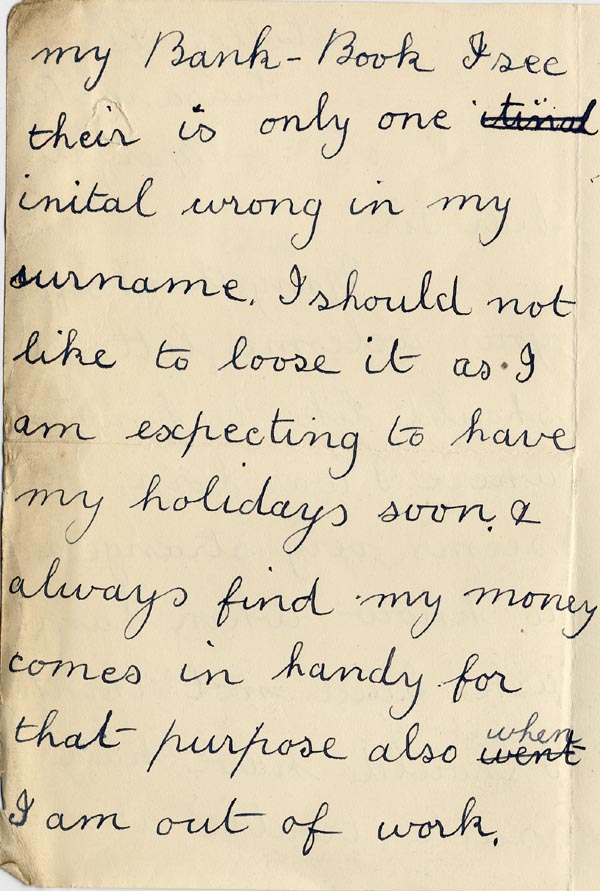 my Bank-Book I see
their is only one
inital wrong in my
surname. I should not
like to loose it as I
am expecting to have
my holidays soon. &
always find my money
comes in handy for
that purpose also went when
I am out of work.